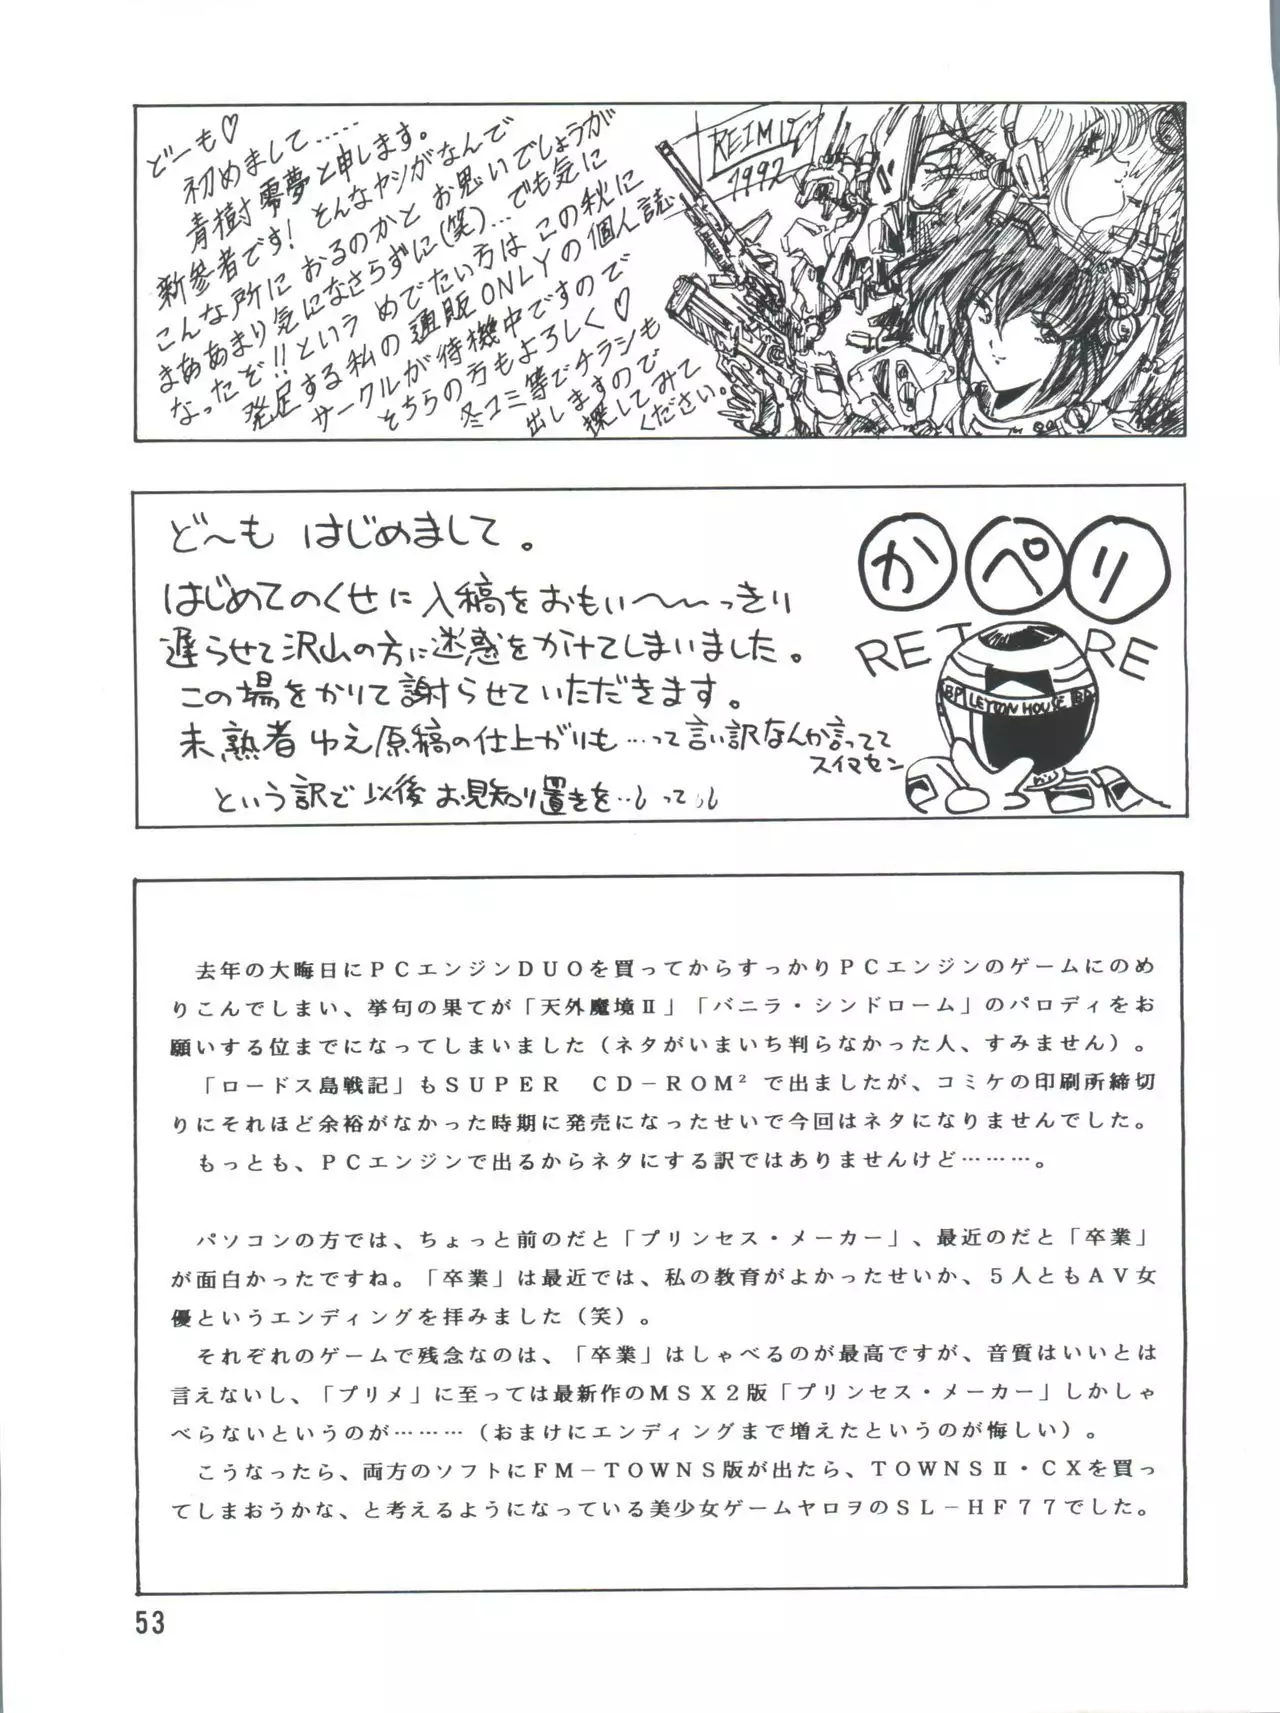 どーも♡
初めまして……
青樹 零夢と申します。
新参者です! そんなヤツがなんで
こんな所におるのかとお思いでしょうが
まああまり気になさらずに(笑)…でも気に
なったぞ!!という めでたい方は この秋に
発足する私の通販ONLYの個人誌
サークルが待機中ですので
そちらの方もよろしく♡
冬コミ等でチラシも
出しますので
探してみて
ください。
REIM
1992
ど〜も はじめまして。
はじめてのくせに入稿をおもい〜〜っきり
遅らせて沢山の方に迷惑をかけてしまいました。
この場をかりて謝らせていただきます。
未熟者ゆえ原稿の仕上がりも…って言い訳なんか言ってて
スイマセン
という訳で以後お見知り置きを…って
かペリ
RETIRE
BP LEYTON HOUSE BP
去年の大晦日にPCエンジンDUOを買ってからすっかりPCエンジンのゲームにのめ
りこんでしまい、挙句の果てが「天外魔境Ⅱ」「バニラ・シンドローム」のパロディをお
願いする位までになってしまいました(ネタがいまいち判らなかった人、すみません)。
「ロードス島戦記」もSUPER CD−ROM²で出ましたが、コミケの印刷所締切
りにそれほど余裕がなかった時期に発売になったせいで今回はネタになりませんでした。
もっとも、PCエンジンで出るからネタにする訳ではありませんけど………。
パソコンの方では、ちょっと前のだと「プリンセス・メーカー」、最近のだと「卒業」
が面白かったですね。「卒業」は最近では、私の教育がよかったせいか、5人ともAV女
優というエンディングを拝みました(笑)。
それぞれのゲームで残念なのは、「卒業」はしゃべるのが最高ですが、音質はいいとは
言えないし、「プリメ」に至っては最新作のMSX2版「プリンセス・メーカー」しかしゃ
べらないというのが………(おまけにエンディングまで増えたというのが悔しい)。
こうなったら、両方のソフトにFM−TOWNS版が出たら、TOWNSⅡ・CXを買っ
てしまおうかな、と考えるようになっている美少女ゲームヤロヲのSL−HF77でした。
53